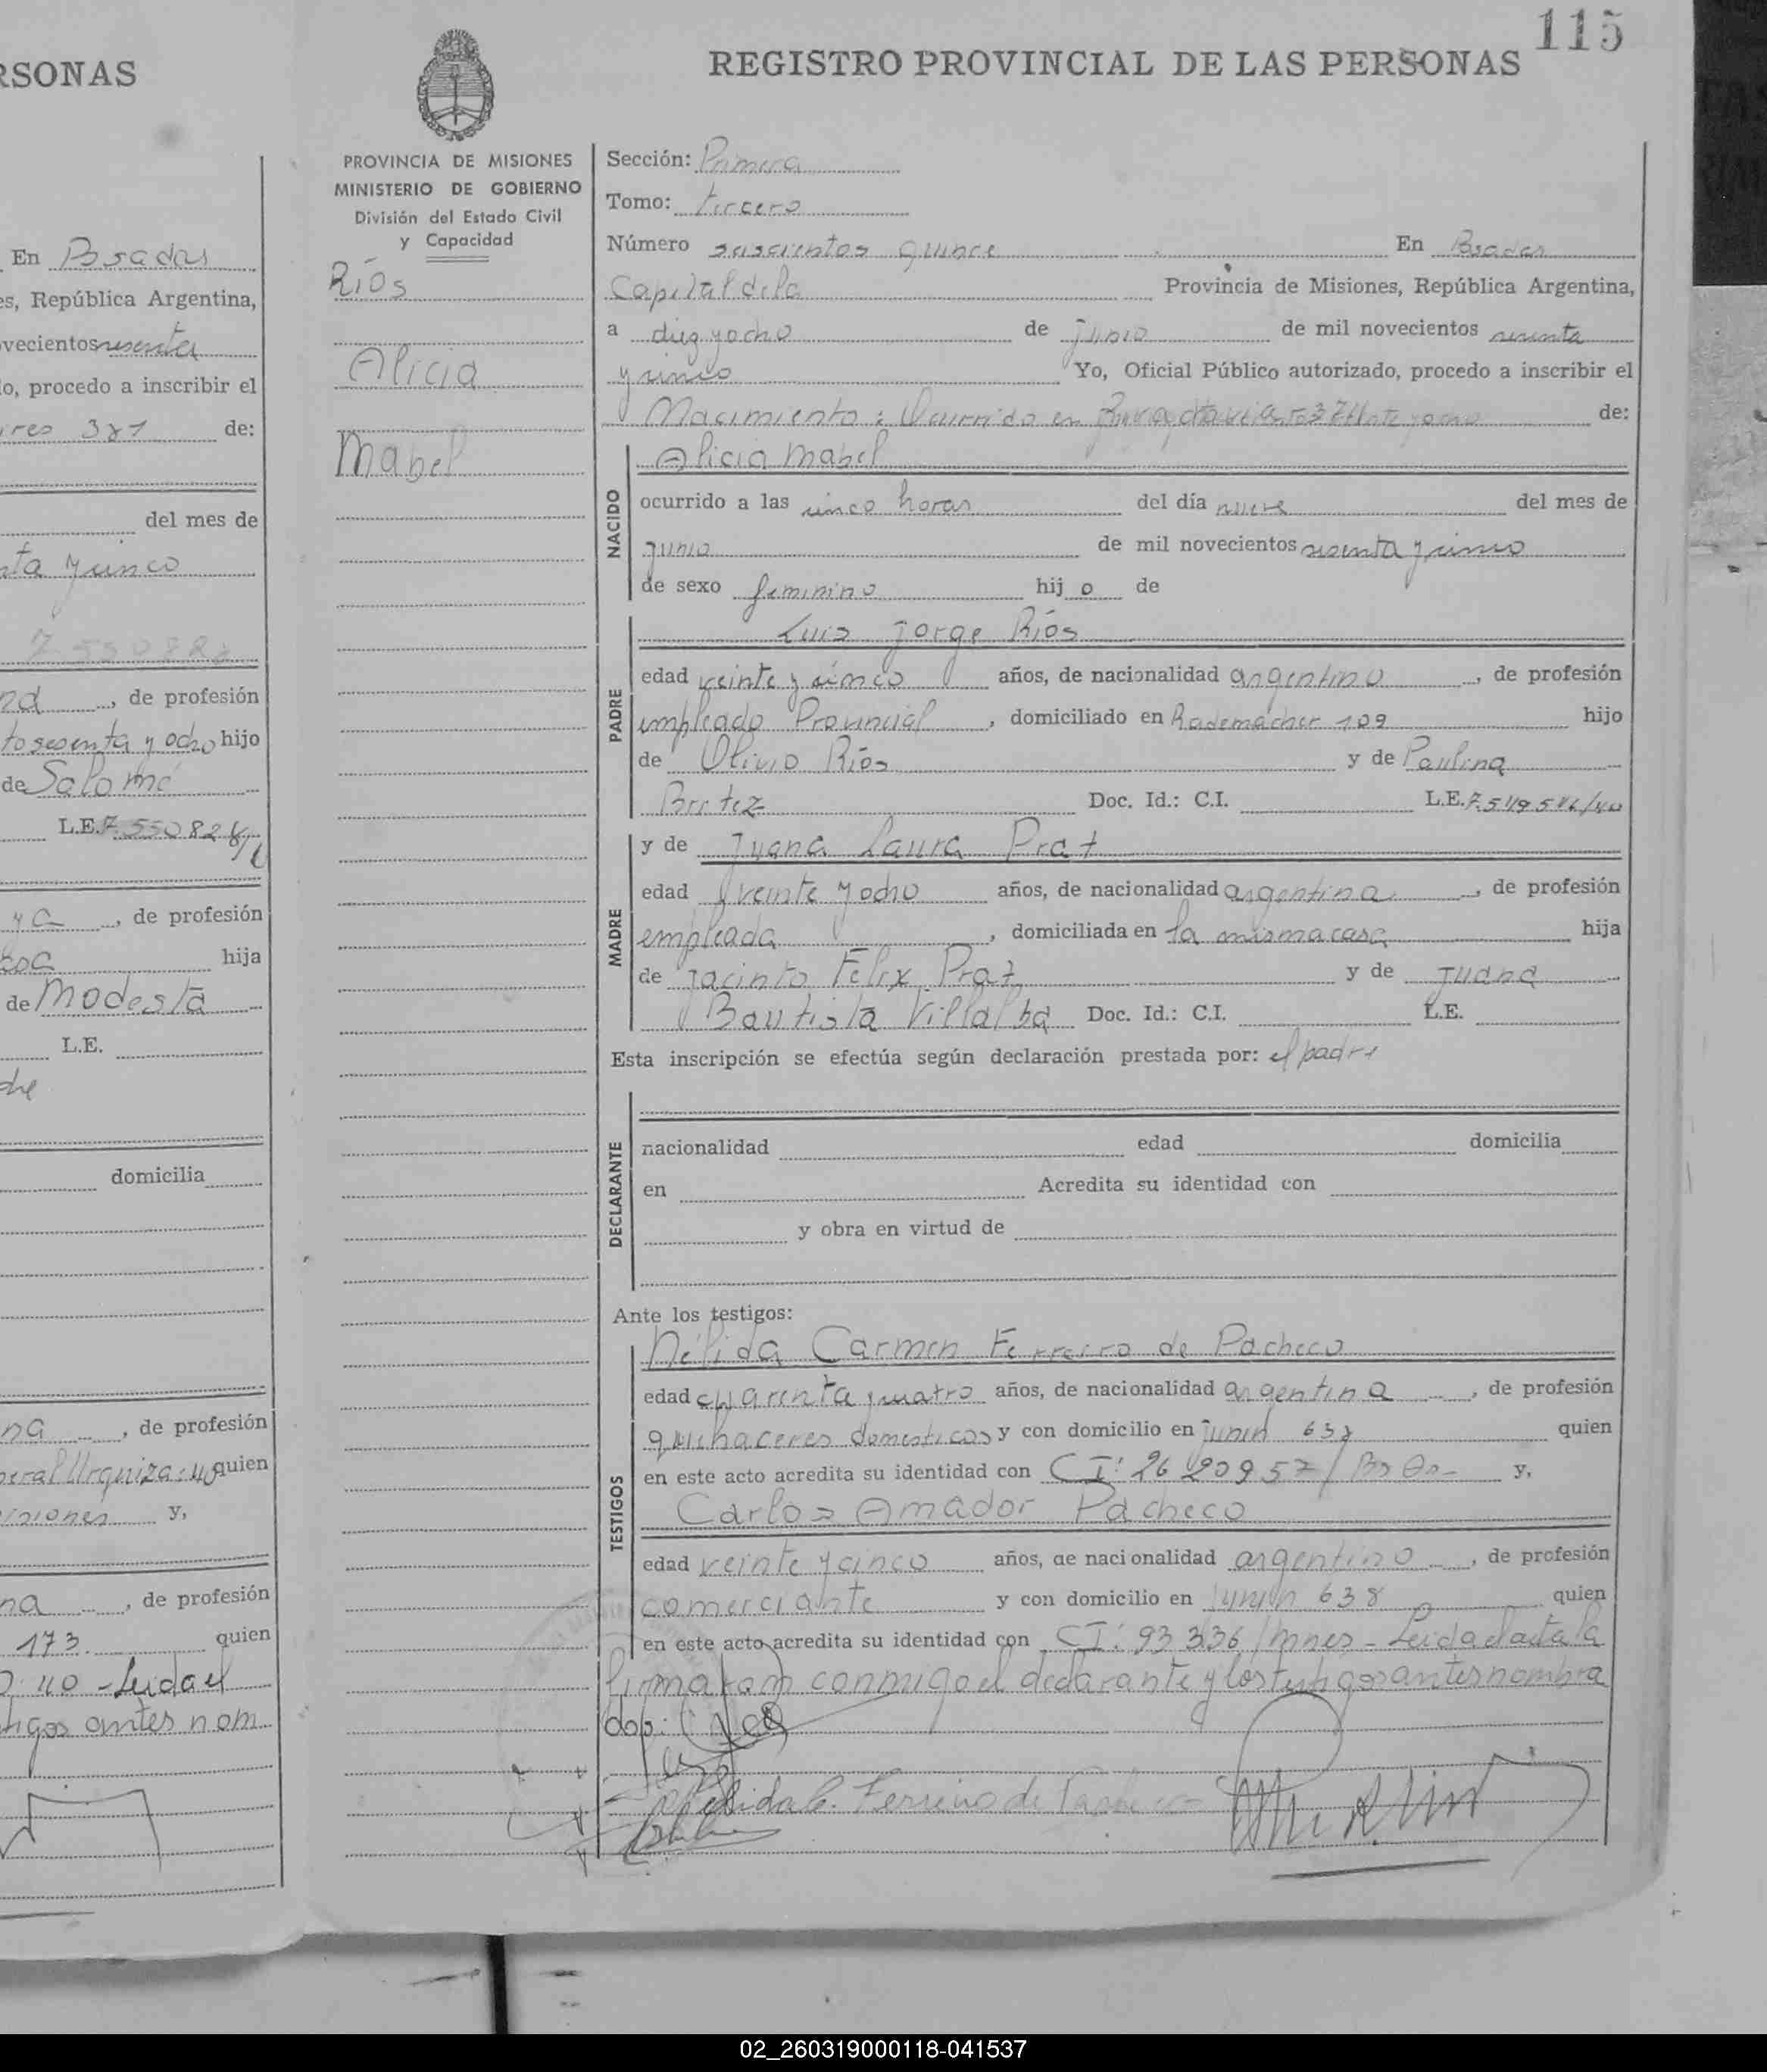 115
RSONAS
REGISTRO PROVINCIAL DE LAS PERSONAS
En Posadas
es, República Argentina,
vecientos sesenta
lo, procedo a inscribir el
ires 381 de:
del mes de
nta y cinco
de profesión
to sesenta y ocho hijo
de Salomé
L.E. 7.550828/
ya, de profesión
hija
de Modesta
L.E.
domicilia
na, de profesión
neral Urquiza quien
isiones y,
na, de profesión
173. quien
40 - Leida el
tigos antes nom
PROVINCIA DE MISIONES
MINISTERIO DE GOBIERNO
División del Estado Civil
y Capacidad
Ríos
Alicia
Mabel
Sección: Primera
Tomo: tercero
Número seiscientos quince En Posadas
Capital de la Provincia de Misiones, República Argentina,
a diez y ocho de junio de mil novecientos sesenta
y cinco Yo, Oficial Público autorizado, procedo a inscribir el
Nacimiento: Ocurrido en de:
NACIDO
Alicia Mabel
ocurrido a las cinco horas del día nueve del mes de
junio de mil novecientos sesenta y cinco
de sexo femenino hij o de
PADRE
Luis Jorge Ríos
edad veinte y cinco años, de nacionalidad argentino, de profesión
empleado Provincial, domiciliado en Rademacher 109 hijo
de Olivio Ríos y de Paulina
Britez Doc. Id.: C.I. L.E. 7.549.546/40
MADRE
y de Juana Laura Prat
edad veinte y ocho años, de nacionalidad argentina, de profesión
empleada, domiciliada en la misma casa hija
de Jacinto Félix Prat y de Juana
Bautista Villalba Doc. Id.: C.I. L.E.
Esta inscripción se efectúa según declaración prestada por: el padre
DECLARANTE
nacionalidad edad domicilia
en Acredita su identidad con
y obra en virtud de
Ante los testigos:
TESTIGOS
Nélida Carmen Ferreiro de Pacheco
edad cuarenta y cuatro años, de nacionalidad argentina, de profesión
quehaceres domesticos y con domicilio en Junin 638 quien
en este acto acredita su identidad con CI: 2620957/Bs As- y,
Carlos Amador Pacheco
edad veinte y cinco años, de nacionalidad argentino, de profesión
comerciante y con domicilio en Junin 638 quien
en este acto acredita su identidad con CI: 93336/Mnes - Leida el acta la
firmaran conmigo el declarante y los testigos antes nombra
dos:
Nélida C. Ferreiro de Pacheco
02_260319000118-041537